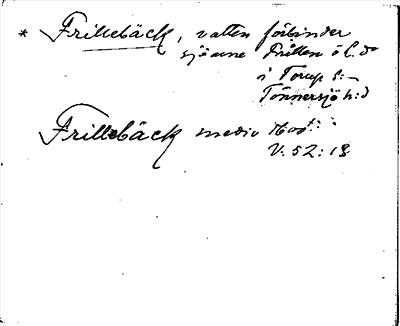 * Frillebäck, vatten förbinder
sjöarne Frillen ö l. do
i Torup s:n
Tönnersjö h:d
Frillebäck medio 1600t:
V: 52: 18